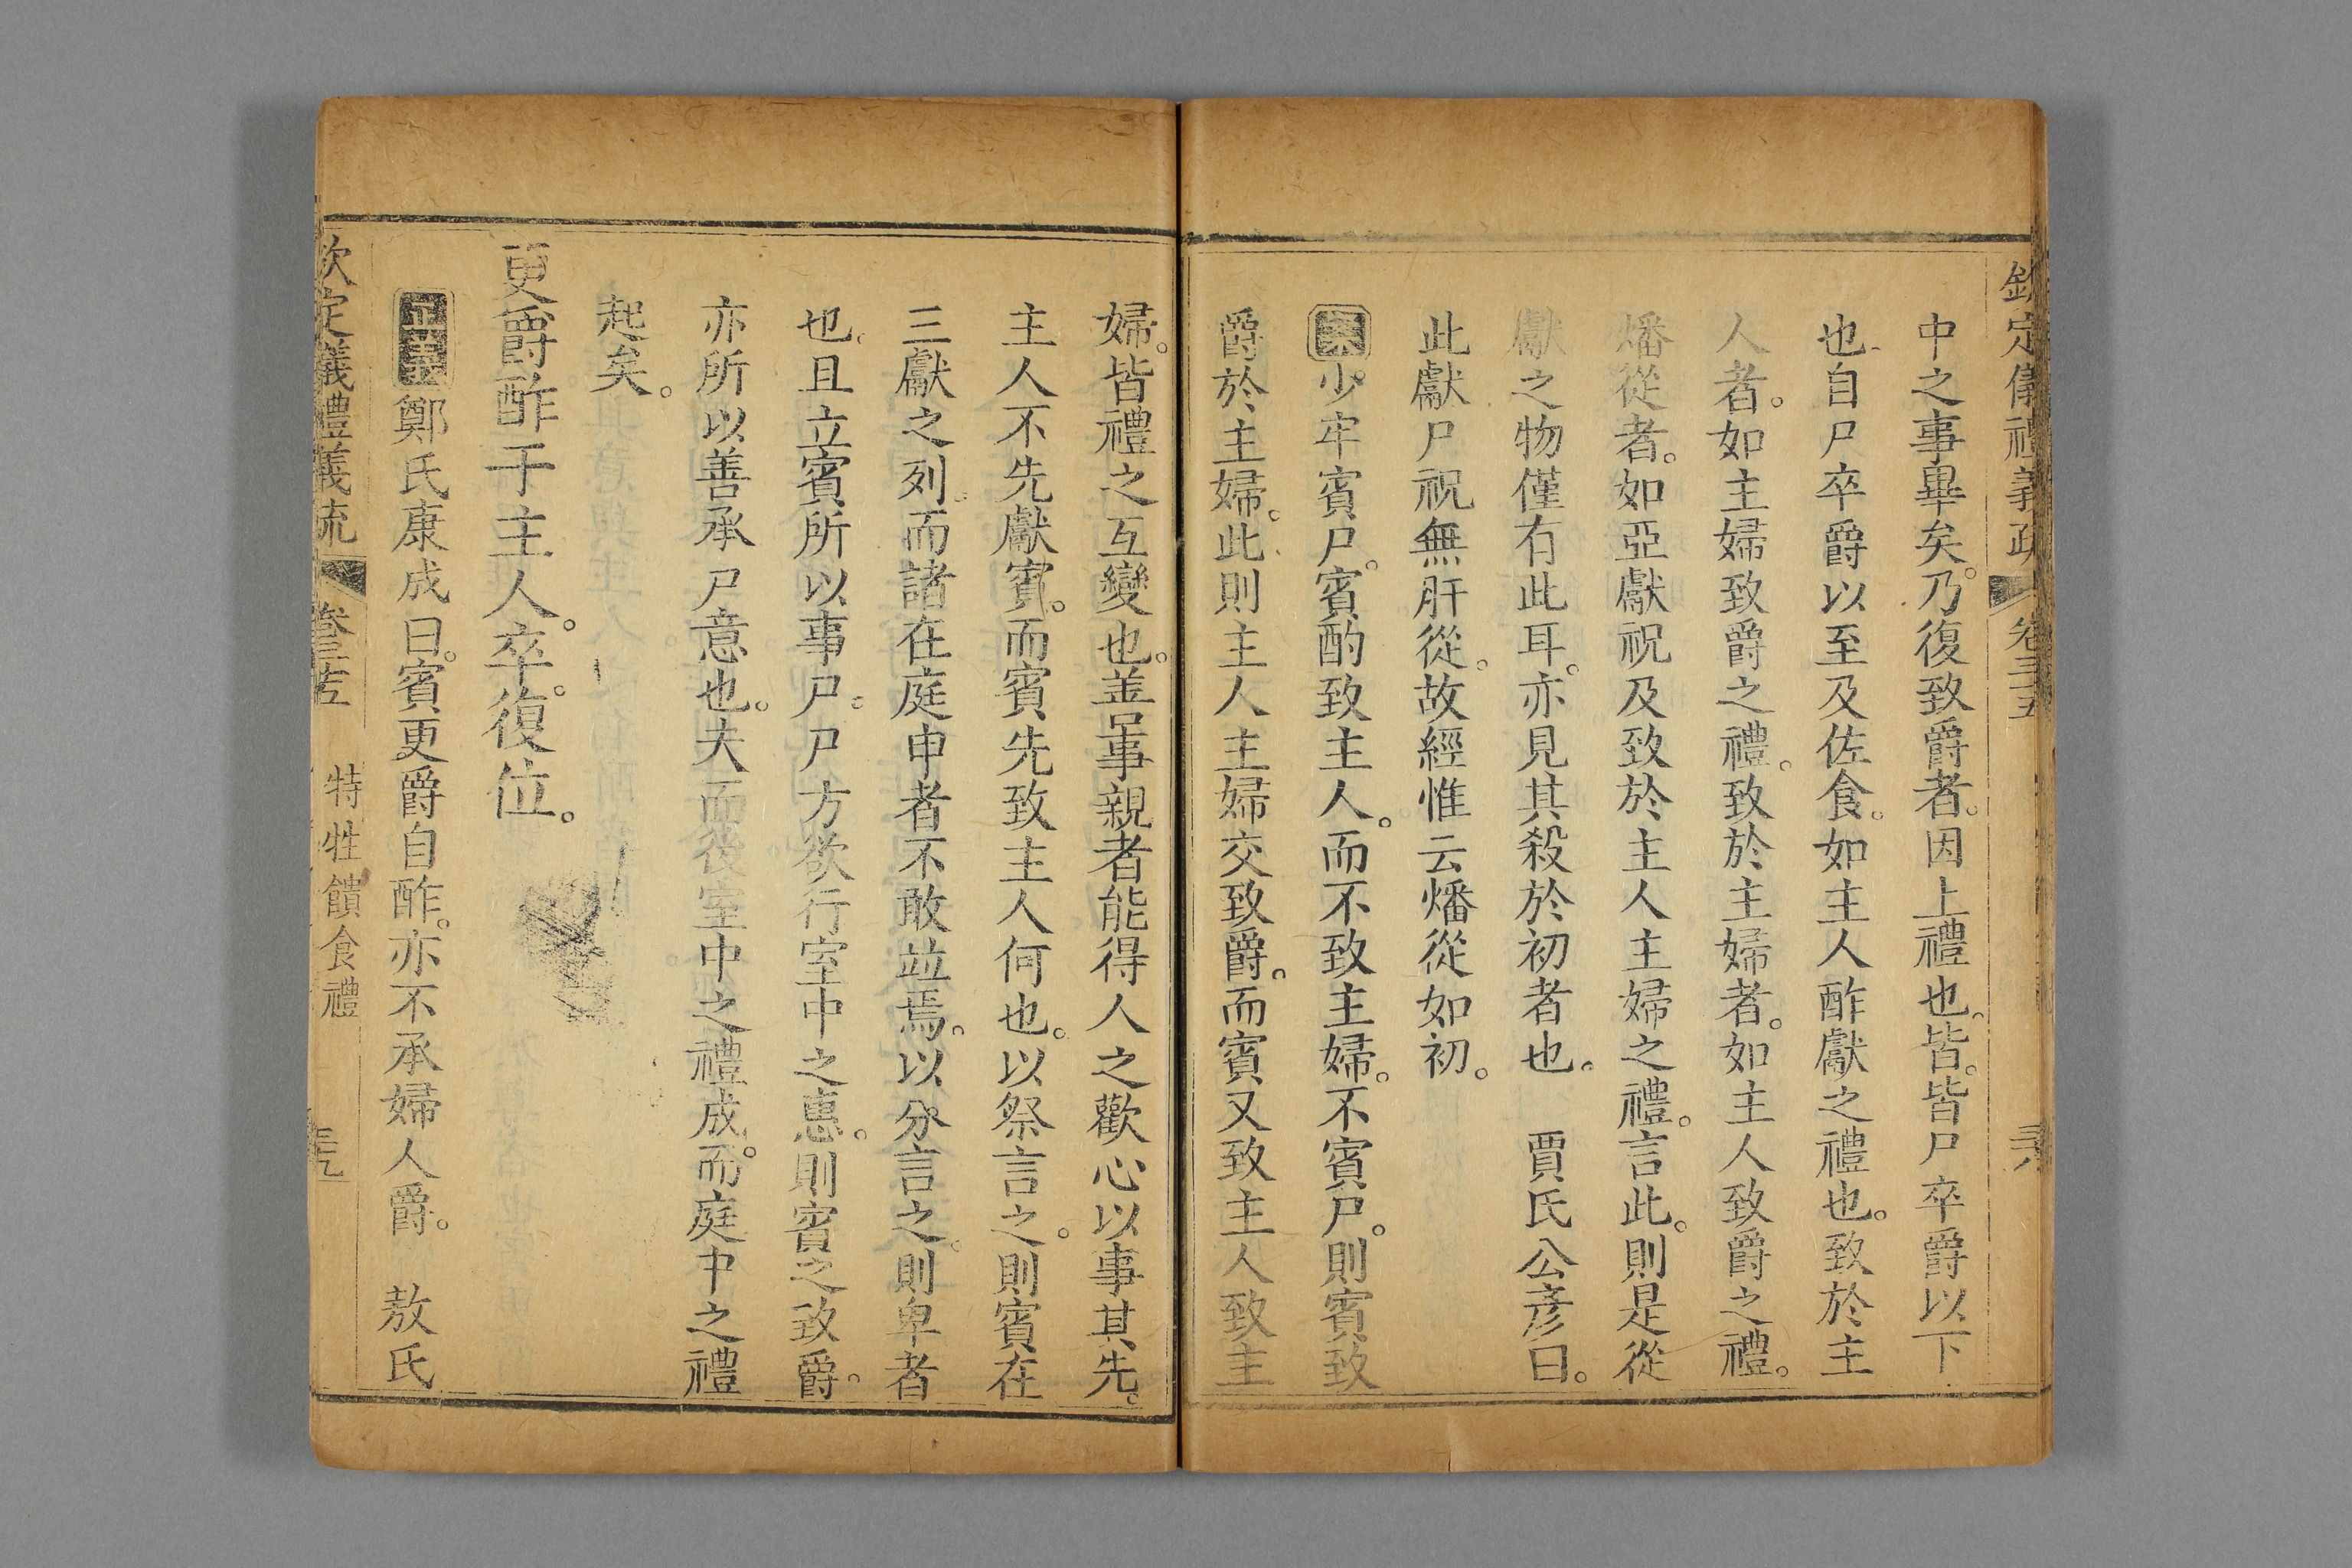 欽定儀禮義疏 卷三五 三六
中之事畢矣。乃復致爵者。因上禮也。皆。皆尸卒爵以下
也。自尸卒爵以至及佐食。如主人酢獻之禮也。致於主
人者。如主婦致爵之禮。致於主婦者。如主人致爵之禮。
燔從者。如亞獻祝及致於主人主婦之禮。言此。則是從
獻之物僅有此耳。亦見其殺於初者也。 賈氏公彥曰。
此獻尸祝無肝從。故經惟云燔從如初。
案少牢賓尸。賓酌致主人。而不致主婦。不賓尸。則賓致
爵於主婦。此則主人主婦交致爵。而賓又致主人致主
婦。皆禮之互變也。蓋事親者能得人之歡心以事其先。
主人不先獻賓。而賓先致主人何也。以祭言之。則賓在
三獻之列。而諸在庭中者不敢並焉。以分言之。則卑者
也。且立賓所以事尸。尸方欲行室中之惠。則賓之致爵。
亦所以善承尸意也。夫而後室中之禮成。而庭中之禮
起矣。
更爵酢于主人。卒。復位。
正義鄭氏康成曰。賓更爵自酢。亦不承婦人爵。 敖氏
欽定儀禮義疏 卷三五 特牲饋食禮